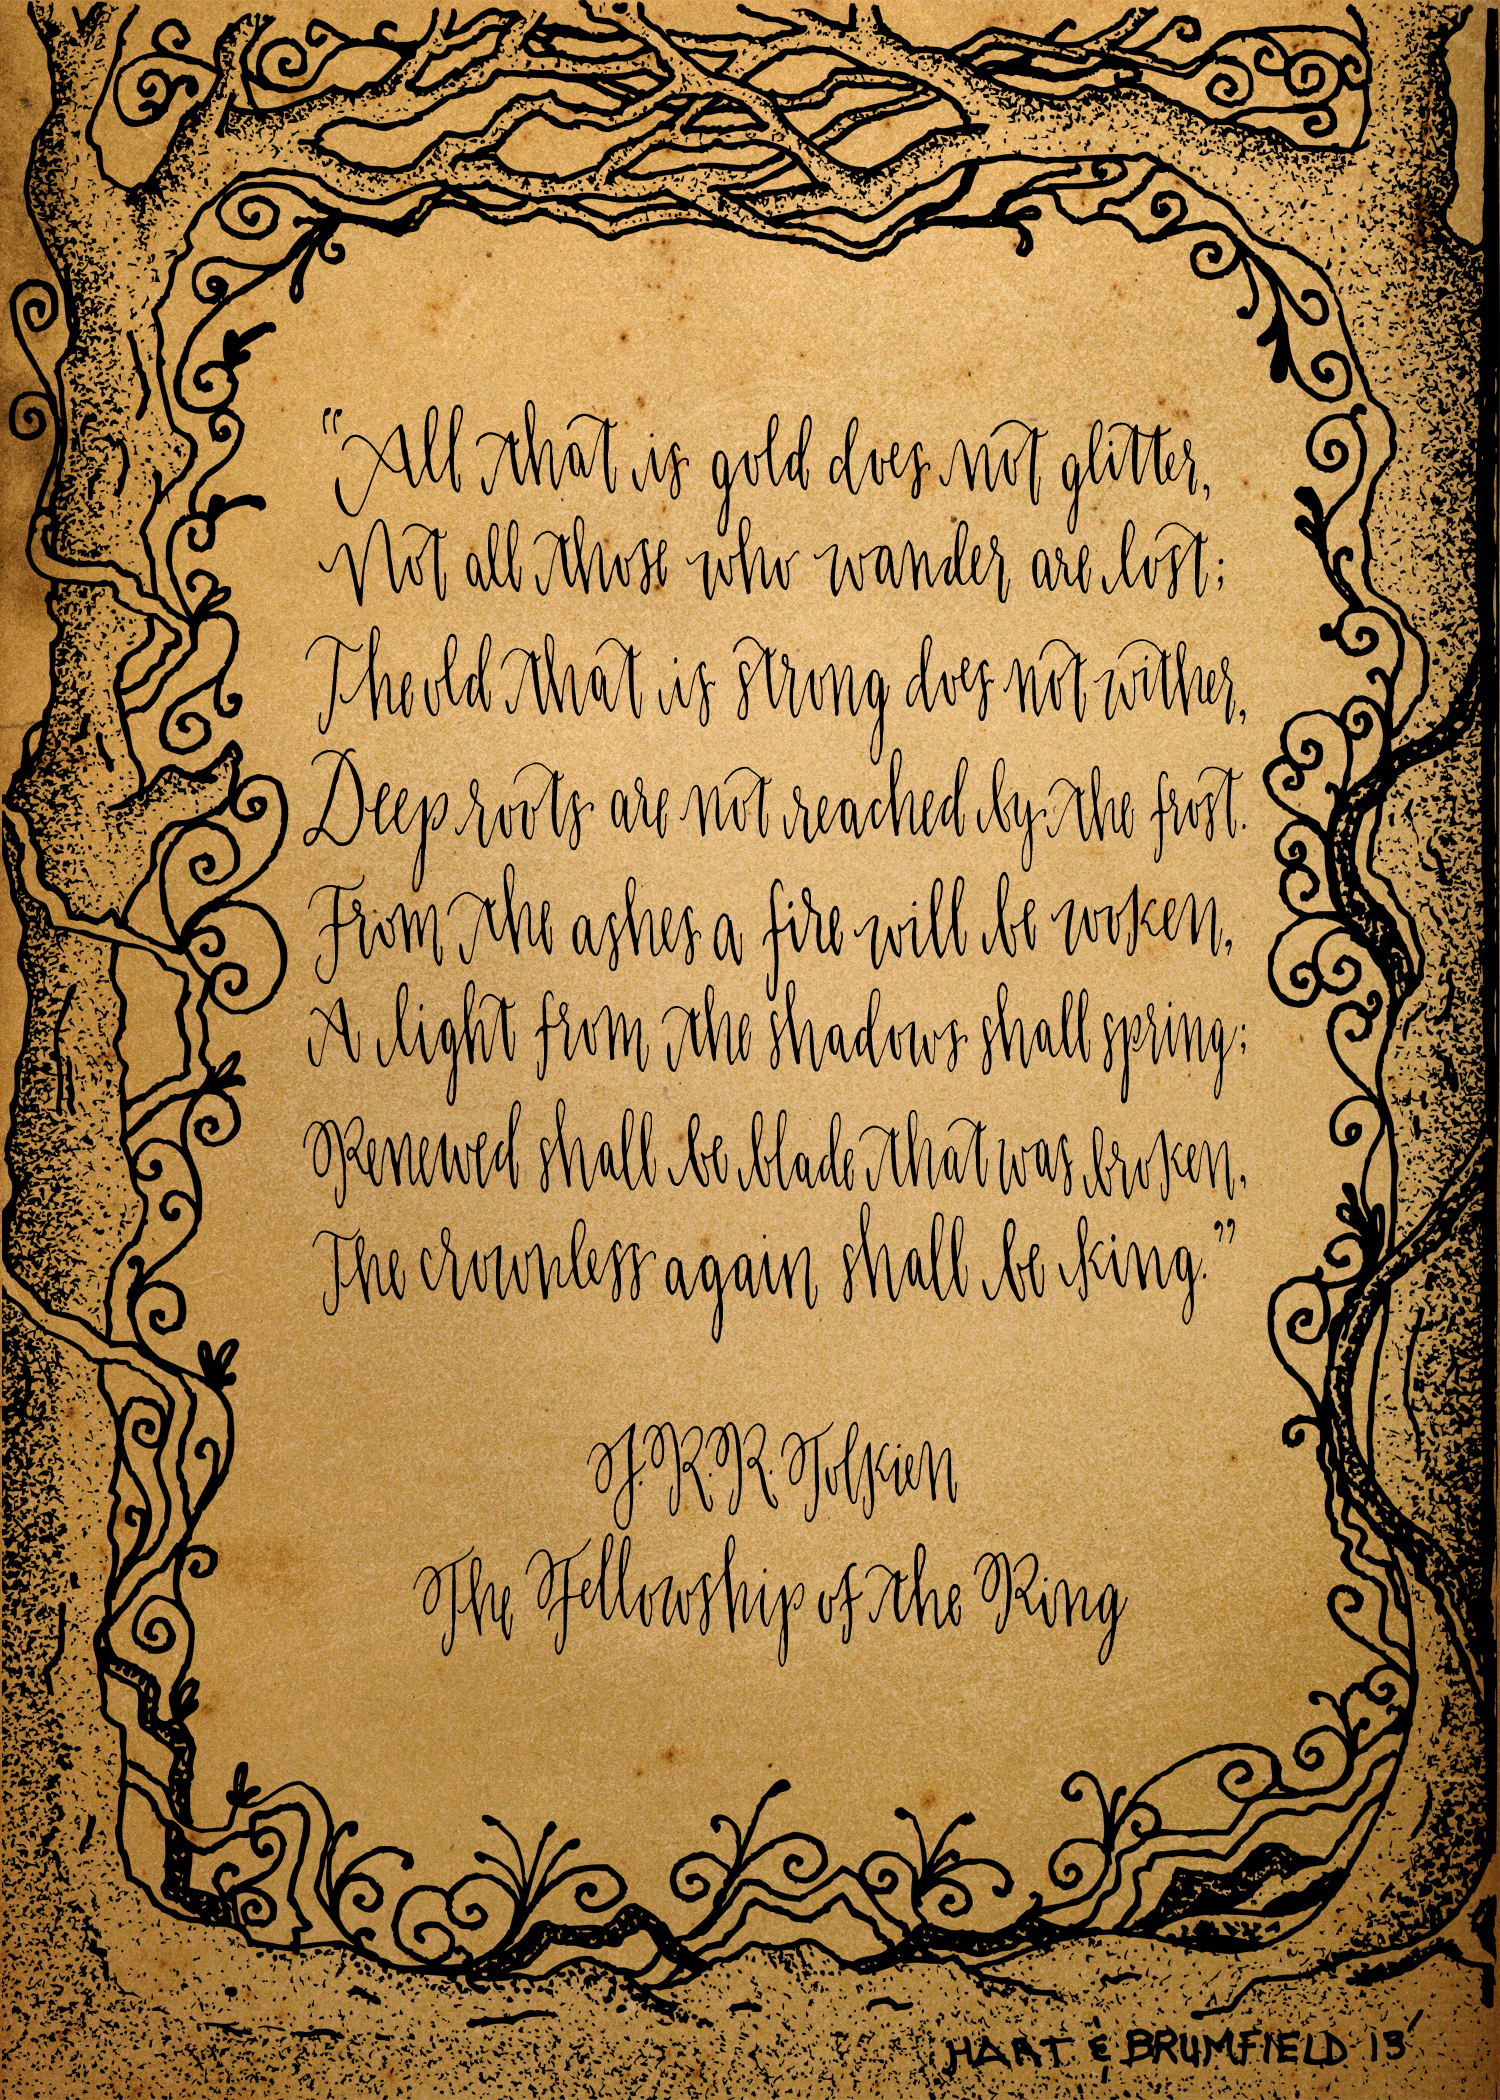 "All that is gold does not glitter,
Not all those who wander are lost;
The old that is strong does not wither,
Deep roots are not reached by the frost.
From the ashes a fire will be woken,
A light from the shadows shall spring;
Renewed shall be blade that was broken,
The crownless again shall be king."
J.R.R. Tolkien
The Fellowship of the Ring
HART & BRUMFIELD 13'